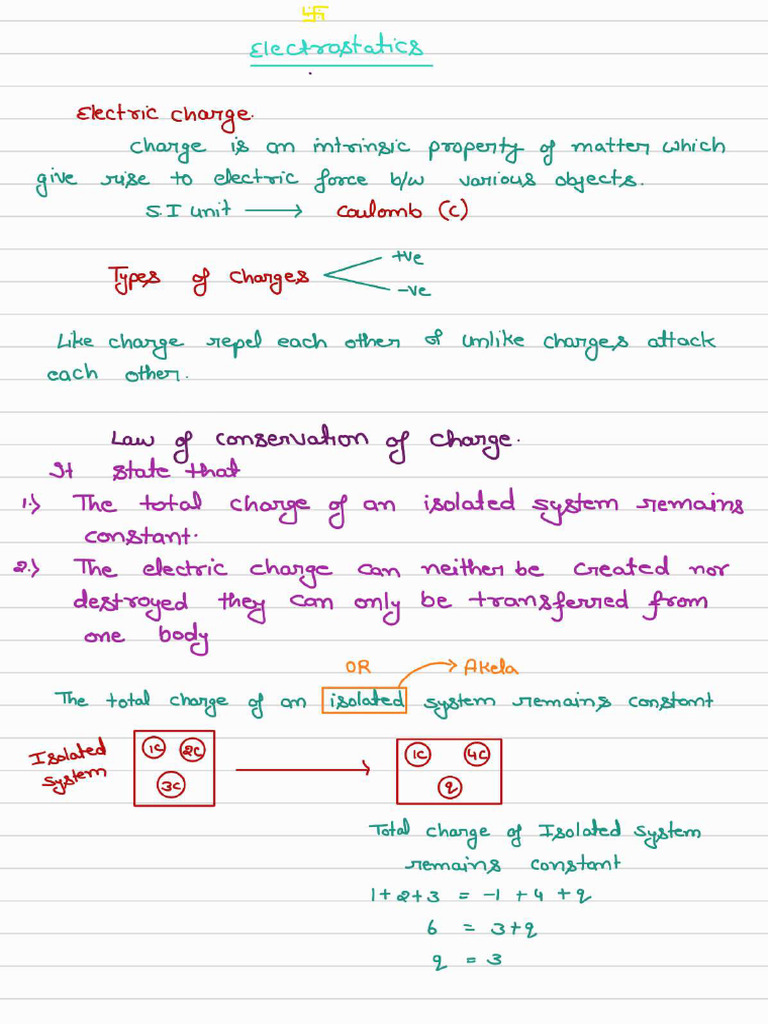 卐
Electrostatics
Electric charge.
charge is an intrinsic property of matter which
give rise to electric force b/w various objects.
S.I unit → coulomb (c)
Types of charges
+ve
-ve
Like charge repel each other & unlike charges attack
each other.
Law of conservation of charge.
It state that
1.) The total charge of an isolated system remains
constant.
2.) The electric charge can neither be created nor
destroyed they can only be transferred from
one body
OR → Akela
The total charge of an isolated system remains constant
Isolated
system
1C 2C
3C
1C 4C
q
Total charge of Isolated system
remains constant
1+2+3 = -1 + 4 + q
6 = 3+q
q = 3